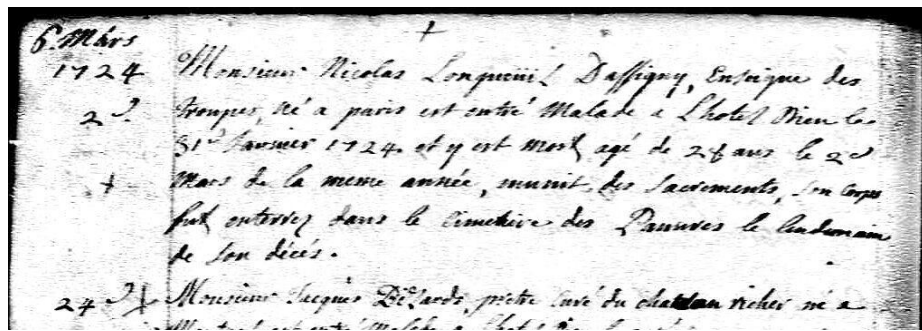 6. Mars
1724 Monsieur Nicolas Longueüil Daffigny, Enseigne des
2d. troupes, né a paris est entré Malade a Lhotel Dieu le
31e Janvier 1724. et y est mort agé de 28 ans le 2d
+ Mars de la meme année, munit des Sacrements, son Corps
fut enterrez dans le Cimetiere des Pauvres le lendemain
de son décés.
24d + Monsieur Jacques prétre Curé du chateau richer né a
est entré Malade a Lhotel Dieu